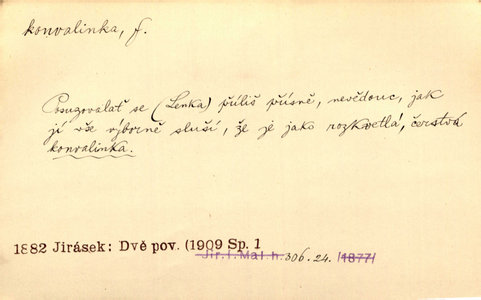 konvalinka, f.
Posuzovalať se (Lenka) příliš přísně, nevědouc, jak
jí vše výborně sluší, že je jako rozkvetlá, čerstvá
konvalinka.
1882 Jirásek: Dvě pov. (1909 Sp. 1
Jir. I. Mal. h. 306. 24. /1877/